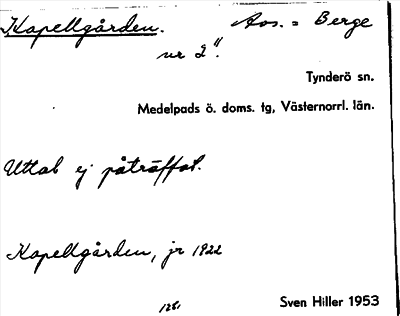 Kapellgården. Aos. = Berge
nr 2".
Tynderö sn.
Medelpads ö. doms. tg, Västernorrl. län.
Uttal ej påträffat.
Kapellgården, jr 1922
Sven Hiller 1953